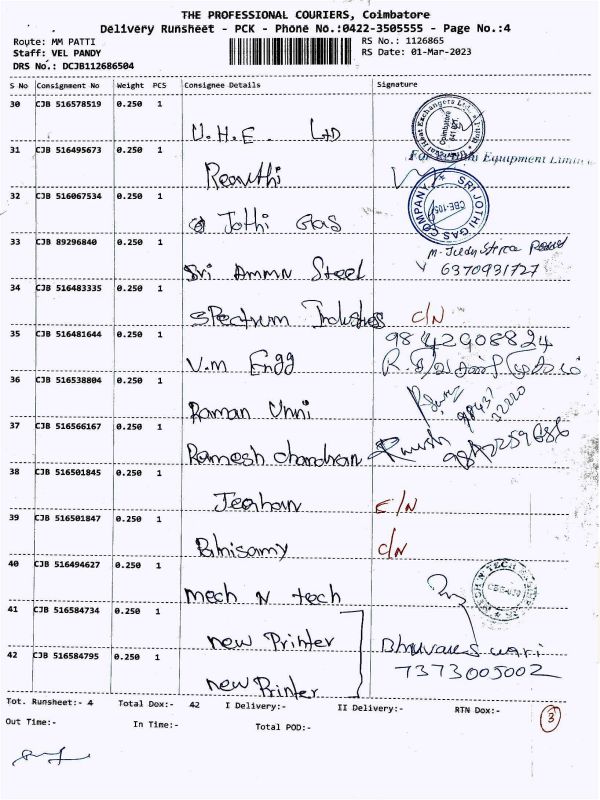 THE PROFESSIONAL COURIERS, Coimbatore
Delivery Runsheet - PCK - Phone No.:0422-3505555 - Page No.:4
Route: MM PATTI
RS No.: 1126865
Staff: VEL PANDY
RS Date: 01-Mar-2023
DRS No.: DCJB112686504
S No Consignment No Weight PCS Consignee Details Signature
30 CJB 516578519 0.250 1
U.H.E. LTD
31 CJB 516495673 0.250 1
Equipment Limited
32 CJB 516067534 0.250 1
Jothi Gas
SRI JOTHI GAS COMPANY
CBE-105
33 CJB 89296840 0.250 1
Sri Amman Steel
6370931727
34 CJB 516483335 0.250 1
Spectrum Industries C/N
35 CJB 516481644 0.250 1
9842908824
V.m Engg
36 CJB 516538804 0.250 1
Raman Unni
37 CJB 516566167 0.250 1
Ramesh chandran
38 CJB 516501845 0.250 1
C/N
39 CJB 516501847 0.250 1
C/N
40 CJB 516494627 0.250 1
mech N tech
41 CJB 516584734 0.250 1
new Printer
Bhuvaneswari
42 CJB 516584795 0.250 1
7373005002
new Printer
Tot. Runsheet:- 4 Total Dox:- 42 I Delivery:- II Delivery:- RTN Dox:-
3
Out Time:- In Time:- Total POD:-